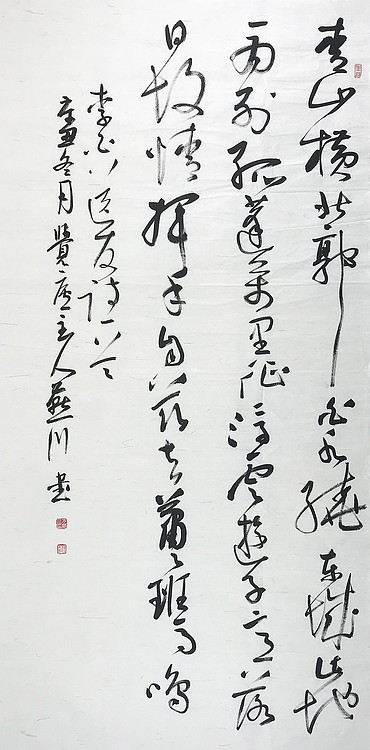 青山橫北郭白水繞東城此地
一為別孤蓬萬里征浮雲遊子意落
日故人情揮手自茲去蕭蕭班馬鳴
李白送友詩一首
冬月覺廬主人川書